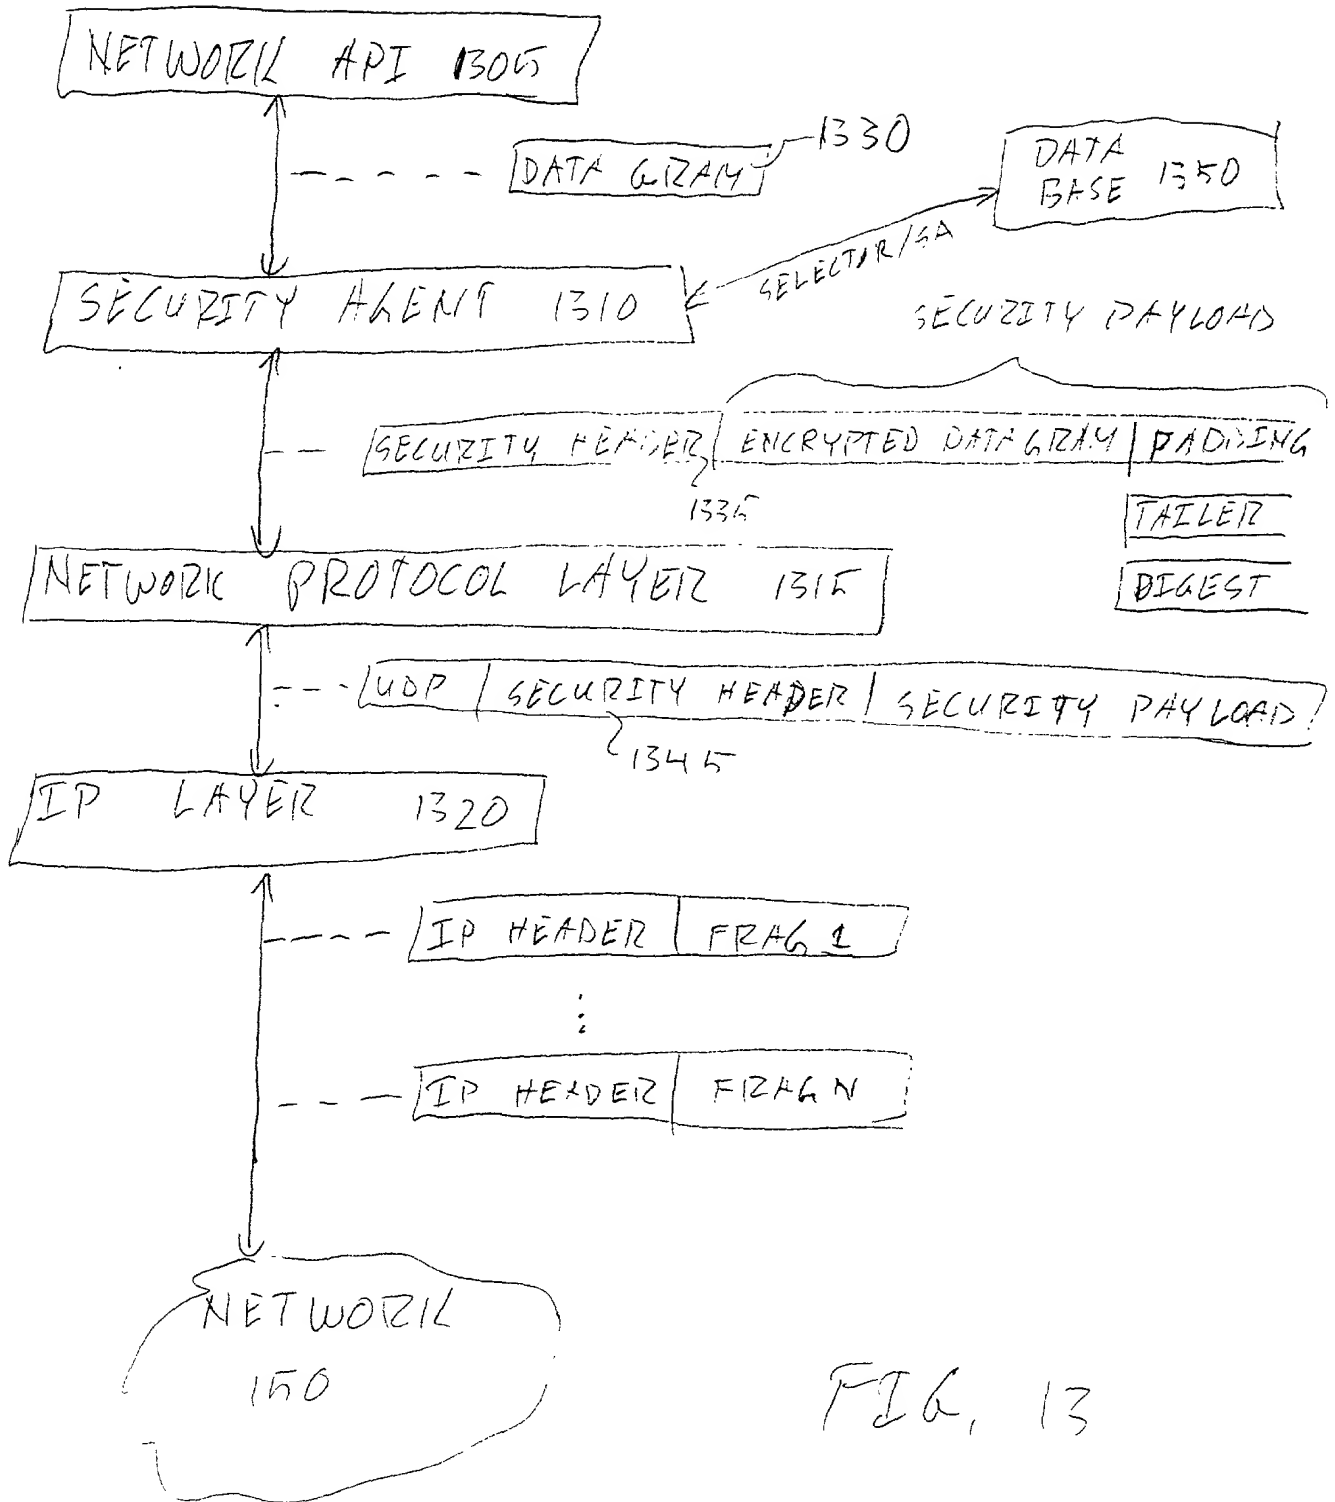 NETWORK API 1305
DATAGRAM 1330
DATA
BASE 1350
SELECTOR/SA
SECURITY AGENT 1310
SECURITY PAYLOAD
SECURITY HEADER | ENCRYPTED DATAGRAM | PADDING
1335
TAILER
DIGEST
NETWORK PROTOCOL LAYER 1315
UDP | SECURITY HEADER | SECURITY PAYLOAD
1345
IP LAYER 1320
IP HEADER | FRAG 1
IP HEADER | FRAG N
NETWORK
150
FIG. 13